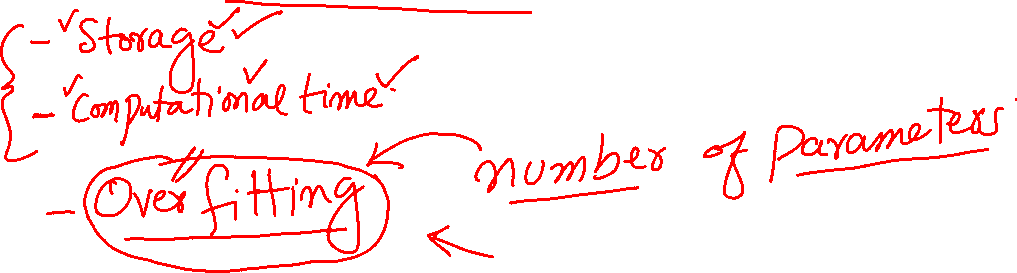 - Storage
- Computational time
- Overfitting
number of Parameters